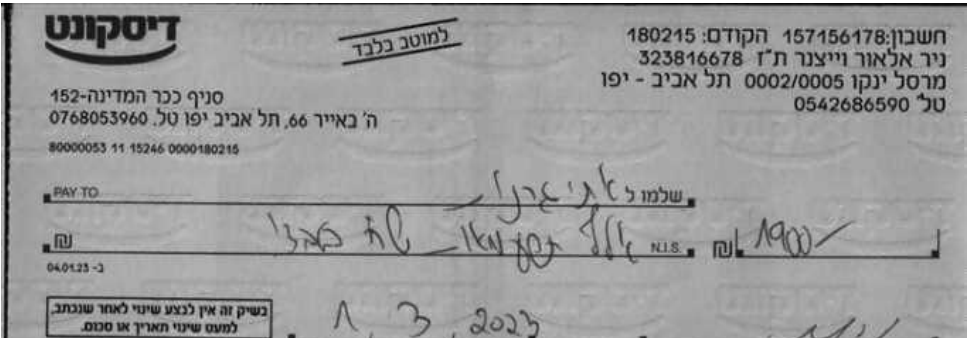 דיסקונט
למוטב בלבד
חשבון:157156178 הקודם: 180215
ניר אלאור וייצנר ת"ז 323816678
מרסל ינקו 0002/0005 תל אביב - יפו
טל' 0542686590
סניף ככר המדינה-152
ה' באייר 66, תל אביב יפו טל. 0768053960
80000053 11 15246 0000180215
PAY TO שלמו ל אתי גרנו
₪ אלף תשע מאות שח בלבד N.I.S. ₪ 1900/
04.01.23 -ב
בשיק זה אין לבצע שינוי לאחר שנכתב,
למעט שינוי תאריך או סכום.
1.3.2023